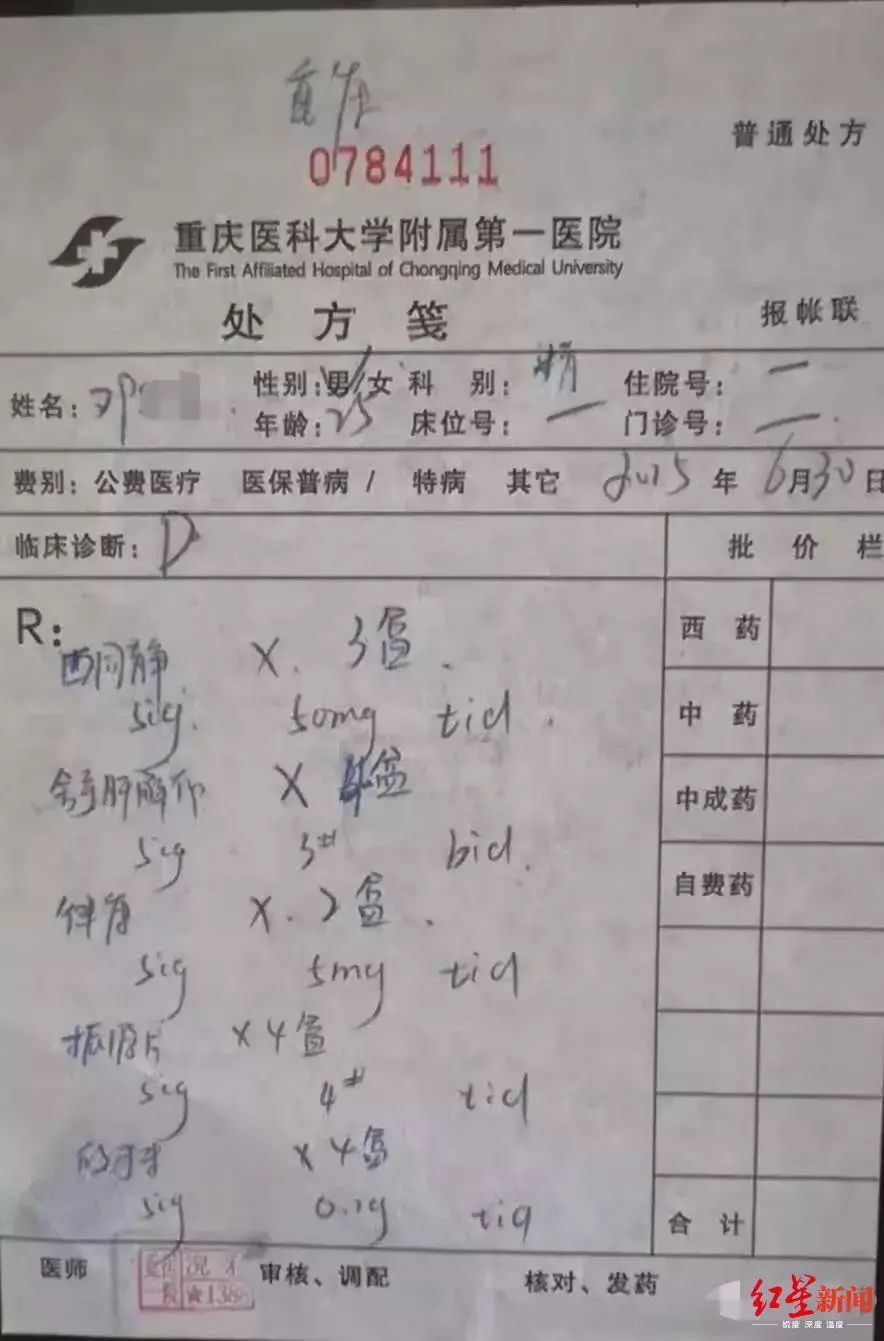 0784111
普通处方
重庆医科大学附属第一医院
The First Affiliated Hospital of Chongqing Medical University
处方笺
报帐联
姓名：邓
性别：男/女 科别：精 住院号：一
年龄：25 床位号：一 门诊号：一
费别：公费医疗 医保普病 / 特病 其它 2015年6月30日
临床诊断：D
批价栏
R：
西同静 X. 3盒.
sig. 50mg tid.
舒肝解郁 X 4盒
sig 3# bid.
X. 2盒.
sig 5mg tid
振源片 X4盒
sig 4# tid
X4盒
sig 0.2g tid
西药
中药
中成药
自费药
合计
医师
★138
审核、调配
核对、发药
红星新闻
锐度 深度 温度